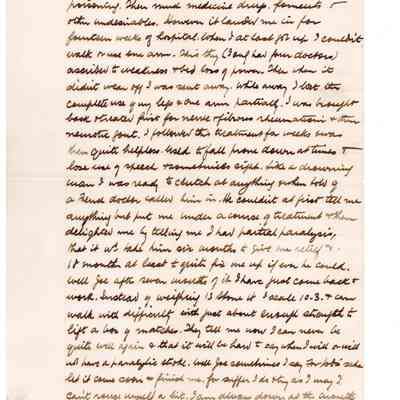 poisoning. Then mud medicine drugs, foments &
other undesirables. However it landed me in for
fourteen weeks of hospital. When I at last got up I couldn't
walk or use one arm. This they (I only had four doctors)
ascribed to weakness & bed loss of power. Then when it
didn't wear off I was sent away. While away I lost the
complete use of my legs & one arm partially. I was brought
back & treated first for nerve & fibrous rheumatism & then
rheumatic gout. I followed the treatment for weeks & was
then quite helpless. Used to fall prone down at times &
lose use of speech & sometimes sight. Like a drowning
man I was ready to clutch at anything when told of
a French doctor called him in. He couldn't at first tell me
anything but put me under a course of treatment & then
delighted me by telling me I had partial paralysis,
that it wd. take him six months to give me relief &
18 months at least to quite fix me up if ever he could.
Well Joe after seven months of it I have just come back to
work. Instead of weighing 13 stone I scale 10.3. & can
walk with difficulty with just about enough strength to
lift a box of matches. They tell me now I can never be
quite well again & that it will be hard to say when I will or will
not have a paralytic stroke. Well Joe sometimes I say for God's sake
let it come soon & finish me, for suffer I do & try as I may I
can't raise myself a bit. I am always down at the